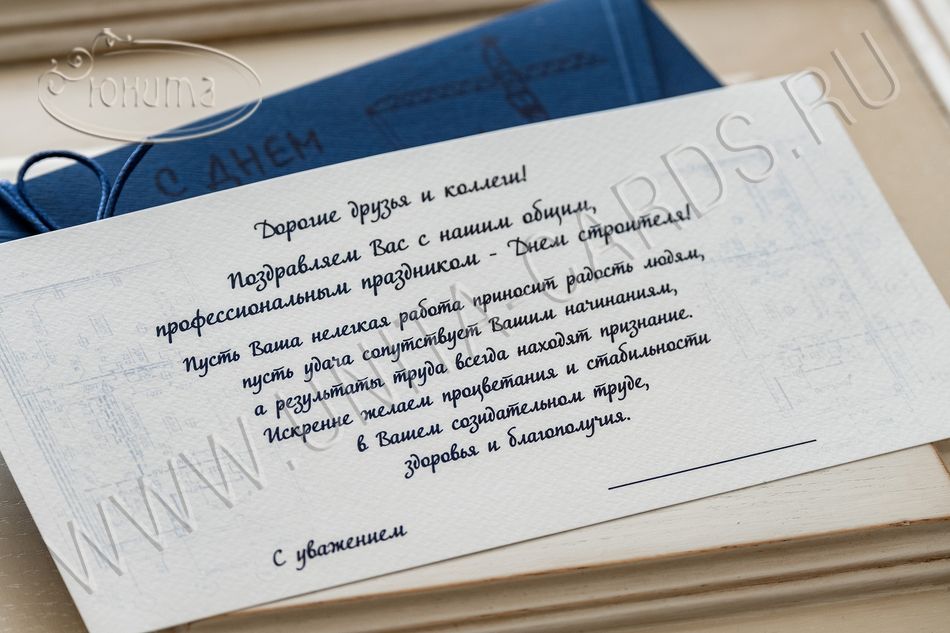 Юнита
С ДНЕМ
Дорогие друзья и коллеги!
Поздравляем Вас с нашим общим,
профессиональным праздником - Днем строителя!
Пусть Ваша нелегкая работа приносит радость людям,
пусть удача сопутствует Вашим начинаниям,
а результаты труда всегда находят признание.
Искренне желаем процветания и стабильности
в Вашем созидательном труде,
здоровья и благополучия.
С уважением
WWW.UNITA-CARDS.RU